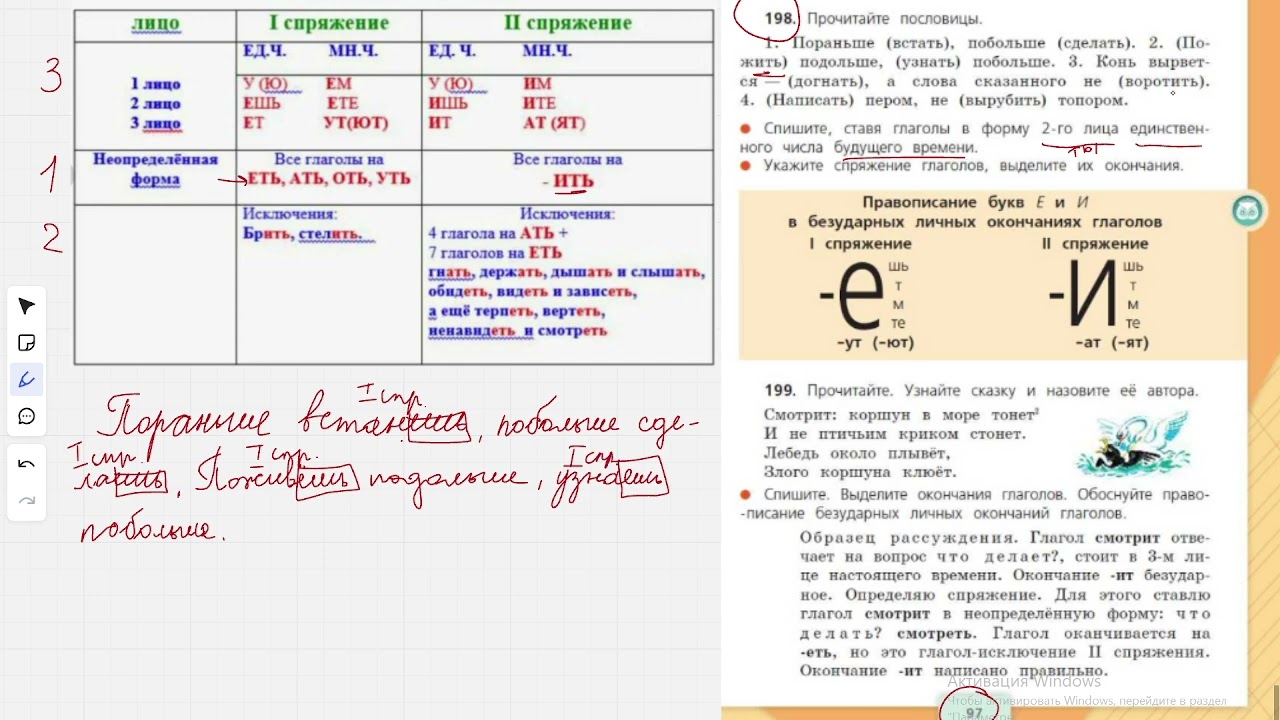 лицо I спряжение II спряжение
ЕД.Ч. МН.Ч. ЕД. Ч. МН.Ч.
3
1 лицо У (Ю) ЕМ У (Ю) ИМ
2 лицо ЕШЬ ЕТЕ ИШЬ ИТЕ
3 лицо ЕТ УТ(ЮТ) ИТ АТ (ЯТ)
1
Неопределённая Все глаголы на Все глаголы на
форма ЕТЬ, АТЬ, ОТЬ, УТЬ - ИТЬ
2
Исключения:
Брить, стелить.
Исключения:
4 глагола на АТЬ +
7 глаголов на ЕТЬ
гнать, держать, дышать и слышать,
обидеть, видеть и зависеть,
а ещё терпеть, вертеть,
ненавидеть и смотреть
I спр.
Пораньше встанешь, побольше сде-
I спр. I спр. I спр.
лаешь, Поживёшь подольше, узнаешь
побольше.
198. Прочитайте пословицы.
1. Пораньше (встать), побольше (сделать). 2. (По-
жить) подольше, (узнать) побольше. 3. Конь вырвет-
ся — (догнать), а слова сказанного не (воротить).
4. (Написать) пером, не (вырубить) топором.
Спишите, ставя глаголы в форму 2-го лица единствен-
ного числа будущего времени.
ты
Укажите спряжение глаголов, выделите их окончания.
Правописание букв Е и И
в безударных личных окончаниях глаголов
I спряжение II спряжение
-е шь т м те -И шь т м те
-ут (-ют) -ат (-ят)
199. Прочитайте. Узнайте сказку и назовите её автора.
Смотрит: коршун в море тонет²
И не птичьим криком стонет.
Лебедь около плывёт,
Злого коршуна клюёт.
Спишите. Выделите окончания глаголов. Обоснуйте право-
-писание безударных личных окончаний глаголов.
Образец рассуждения. Глагол смотрит отве-
чает на вопрос что делает?, стоит в 3-м ли-
це настоящего времени. Окончание -ит безудар-
ное. Определяю спряжение. Для этого ставлю
глагол смотрит в неопределённую форму: что
делать? смотреть. Глагол оканчивается на
-еть, но это глагол-исключение II спряжения.
Окончание -ит написано правильно.
Активация Windows
Чтобы активировать Windows, перейдите в раздел
"Параметры
97